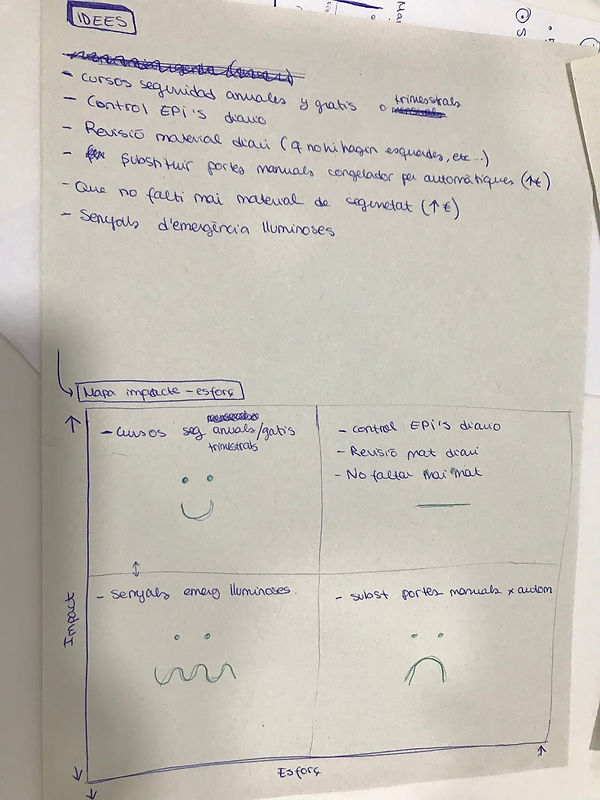 IDEES
- cursos seguridad anuales y gratis o trimestrals
- Control EPI's diario
- Revisió material diari (q no hi hagen esquerdes, etc...)
- Substituir portes manuals congelador per automàtiques (↑€)
- Que no falti mai material de seguretat (↑€)
- Senyals d'emergència lluminoses
Mapa impacte - esforç
- cursos seg anuals/gatis
trimestrals
- control EPI's diario
- Revisió mat diari
- No faltar mai mat
- Senyals emerg lluminoses.
- subst portes manuals x autom
Impact
Esforç